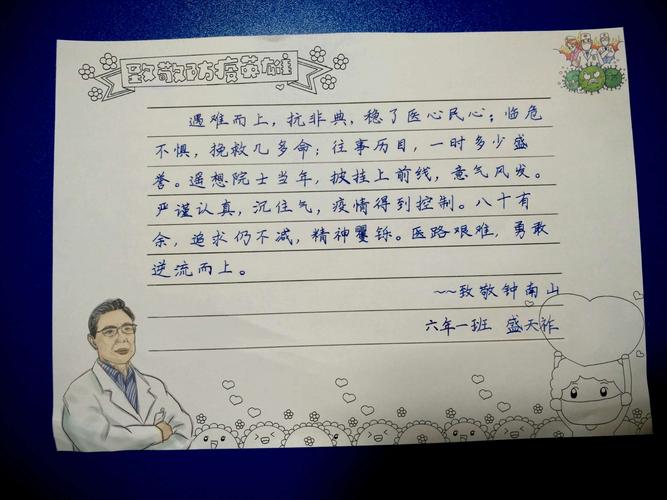 致敬防疫英雄
遇难而上，抗非典，稳了医心民心；临危
不惧，挽救几多命；往事历目，一时多少盛
誉。遥想院士当年，披挂上前线，意气风发。
严谨认真，沉住气，疫情得到控制。八十有
余，追求仍不减，精神矍铄。医路艰难，勇敢
逆流而上。
~~致敬钟南山
六年一班 盛天祚